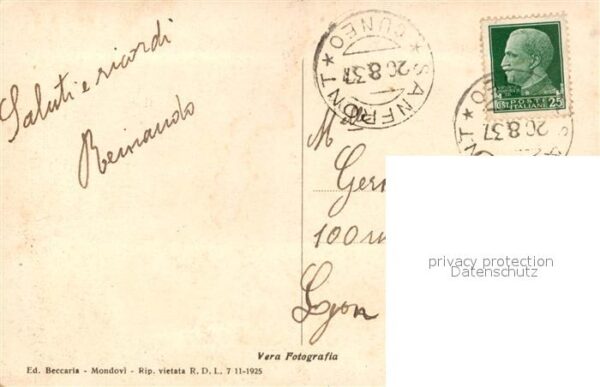 Saluti e ricordi
SANFRONT * CUNEO *
20.8.37
POSTE ITALIANE
CENT. 25
20.8.37
M
Ger
100
Lyon
privacy protection
Datenschutz
Vera Fotografia
Ed. Beccaria - Mondovì - Rip. vietata R. D. L. 7 11-1925